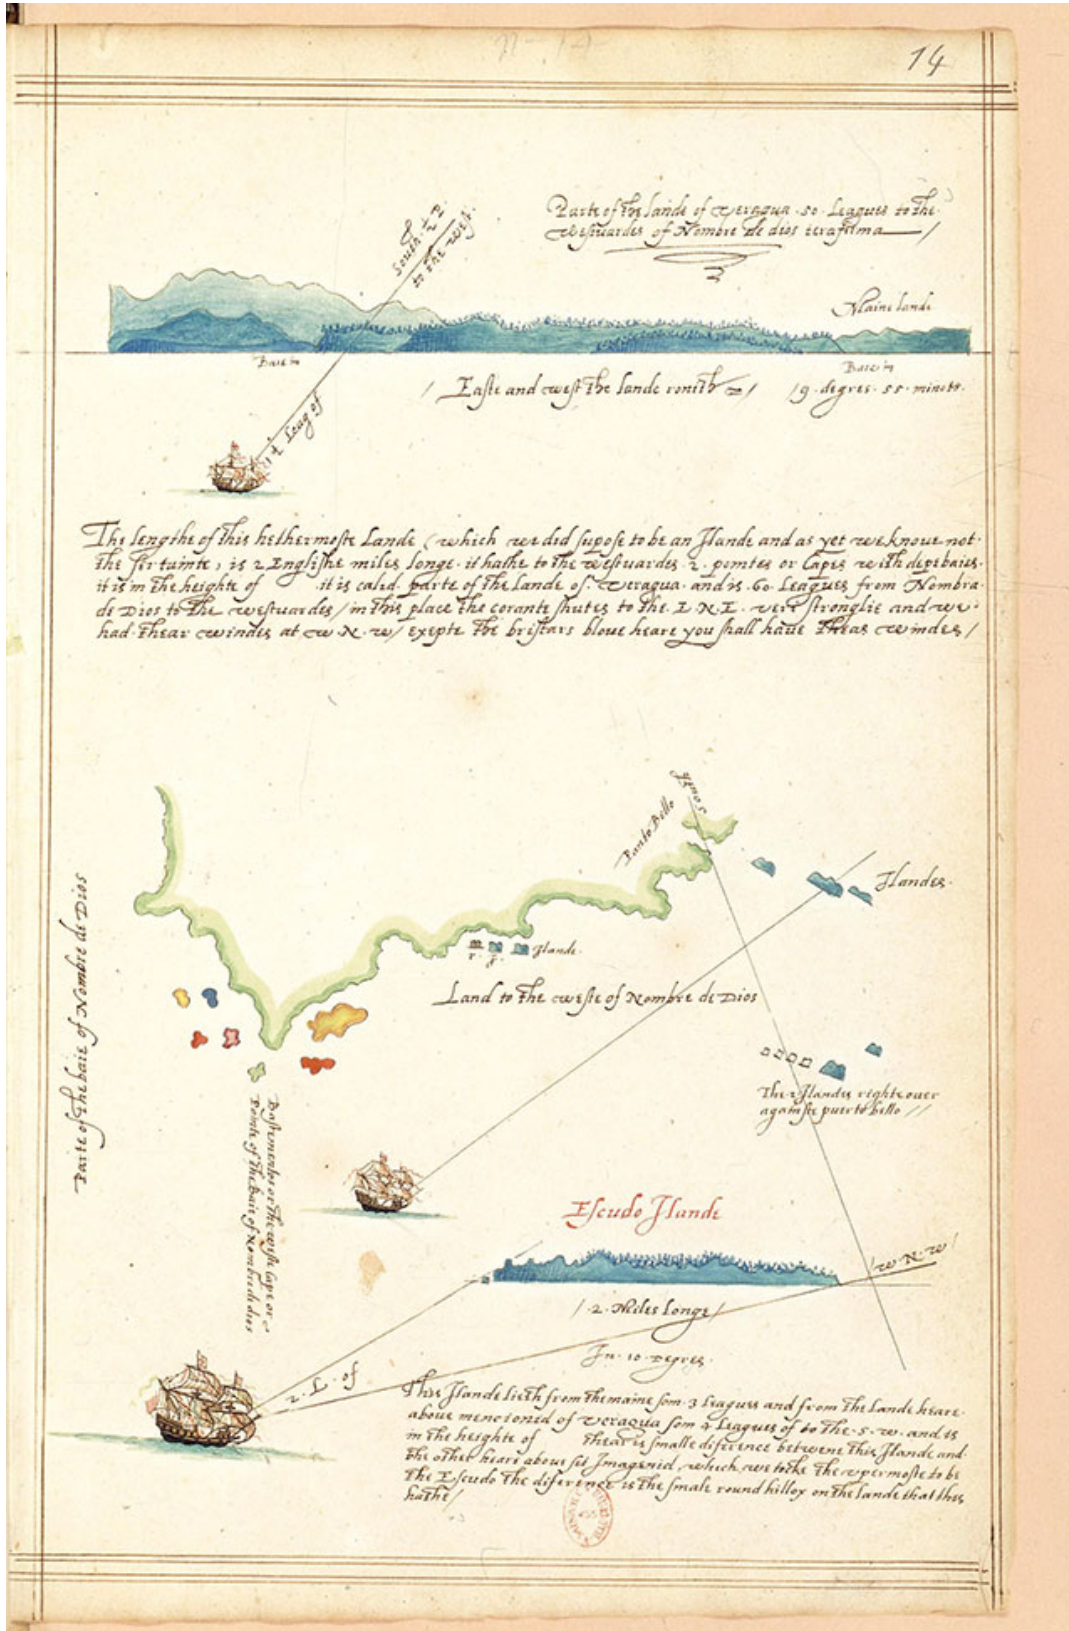 14
Parte of the lande of veragua . 50 . Leagues to the
westwardes of Nombre de dios terafirma
South &
to the west.
Maine lande
Base
Base
Easte and west the lande
9 . degres . 55 . minuts .
Leag of
The lengthe of this hethermoste Lande (which we did supose to be an Ilande and as yet we knowe not
the sertainte) is 2 Englishe miles longe . it hathe to the westwardes . 2 . pointes or Capes with depe baies.
it is in the heighte of it is calid . parte of the Lande of . veragua . and is . 60 Leagues from Nombra
de Dios to the westwardes / in this place the corante shutes to the . E . N . E . veri stronglie and we
had thear windes at w . N . w / exepte the brisars blowe heare you shall have theas windes /
South
Porto Bello
Ilandes .
Ilande .
Land to the weste of Nombre de Dios
Parte of the baie of Nombre de Dios
The 2 Ilandes righte over
againste puerto bello //
Bastimentos or the weste Cape or
Pointe of the baie of Nombre de dios
Escudo Ilande
w . N . w
/ . 2 . Miles Longe /
In . 10 . Degres .
2 . L . of
This Ilande lieth from the maine som . 3 leagues and from the Lande heare
above mencionid of veragua som 4 Leagues of to the . s . w . and is
in the heighte of thear is smalle diference betwene this Ilande and
the other heare above set Imagenid , which we tocke the upermoste to be
the Escudo the diference is the smale round hillox on the lande that this
hathe /